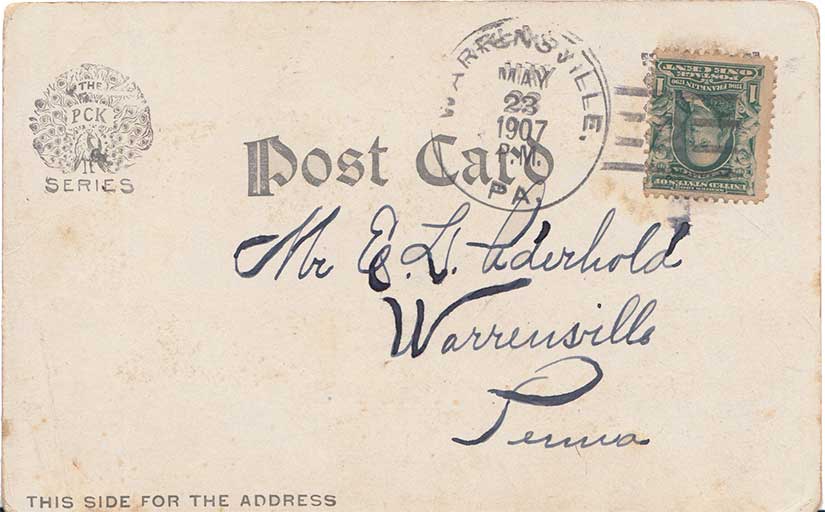 THE
PCK
SERIES
Post Card
WARRENSVILLE,
MAY
23
1907
P.M.
PA.
ONE CENT
POSTAGE
1 1706 FRANKLIN 1790 1
SERIES 1902
UNITED STATES OF
Mr E. L. Aderhold
Warrensville
Penna
THIS SIDE FOR THE ADDRESS